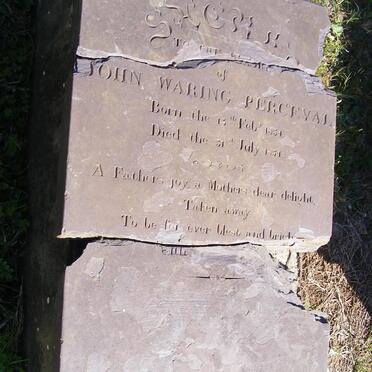 SACRED
To the
of
JOHN WARING PERCEVAL
Born the
Died the 31st July
A Fathers joy a Mothers dear delight
Taken away
To be for ever blest and